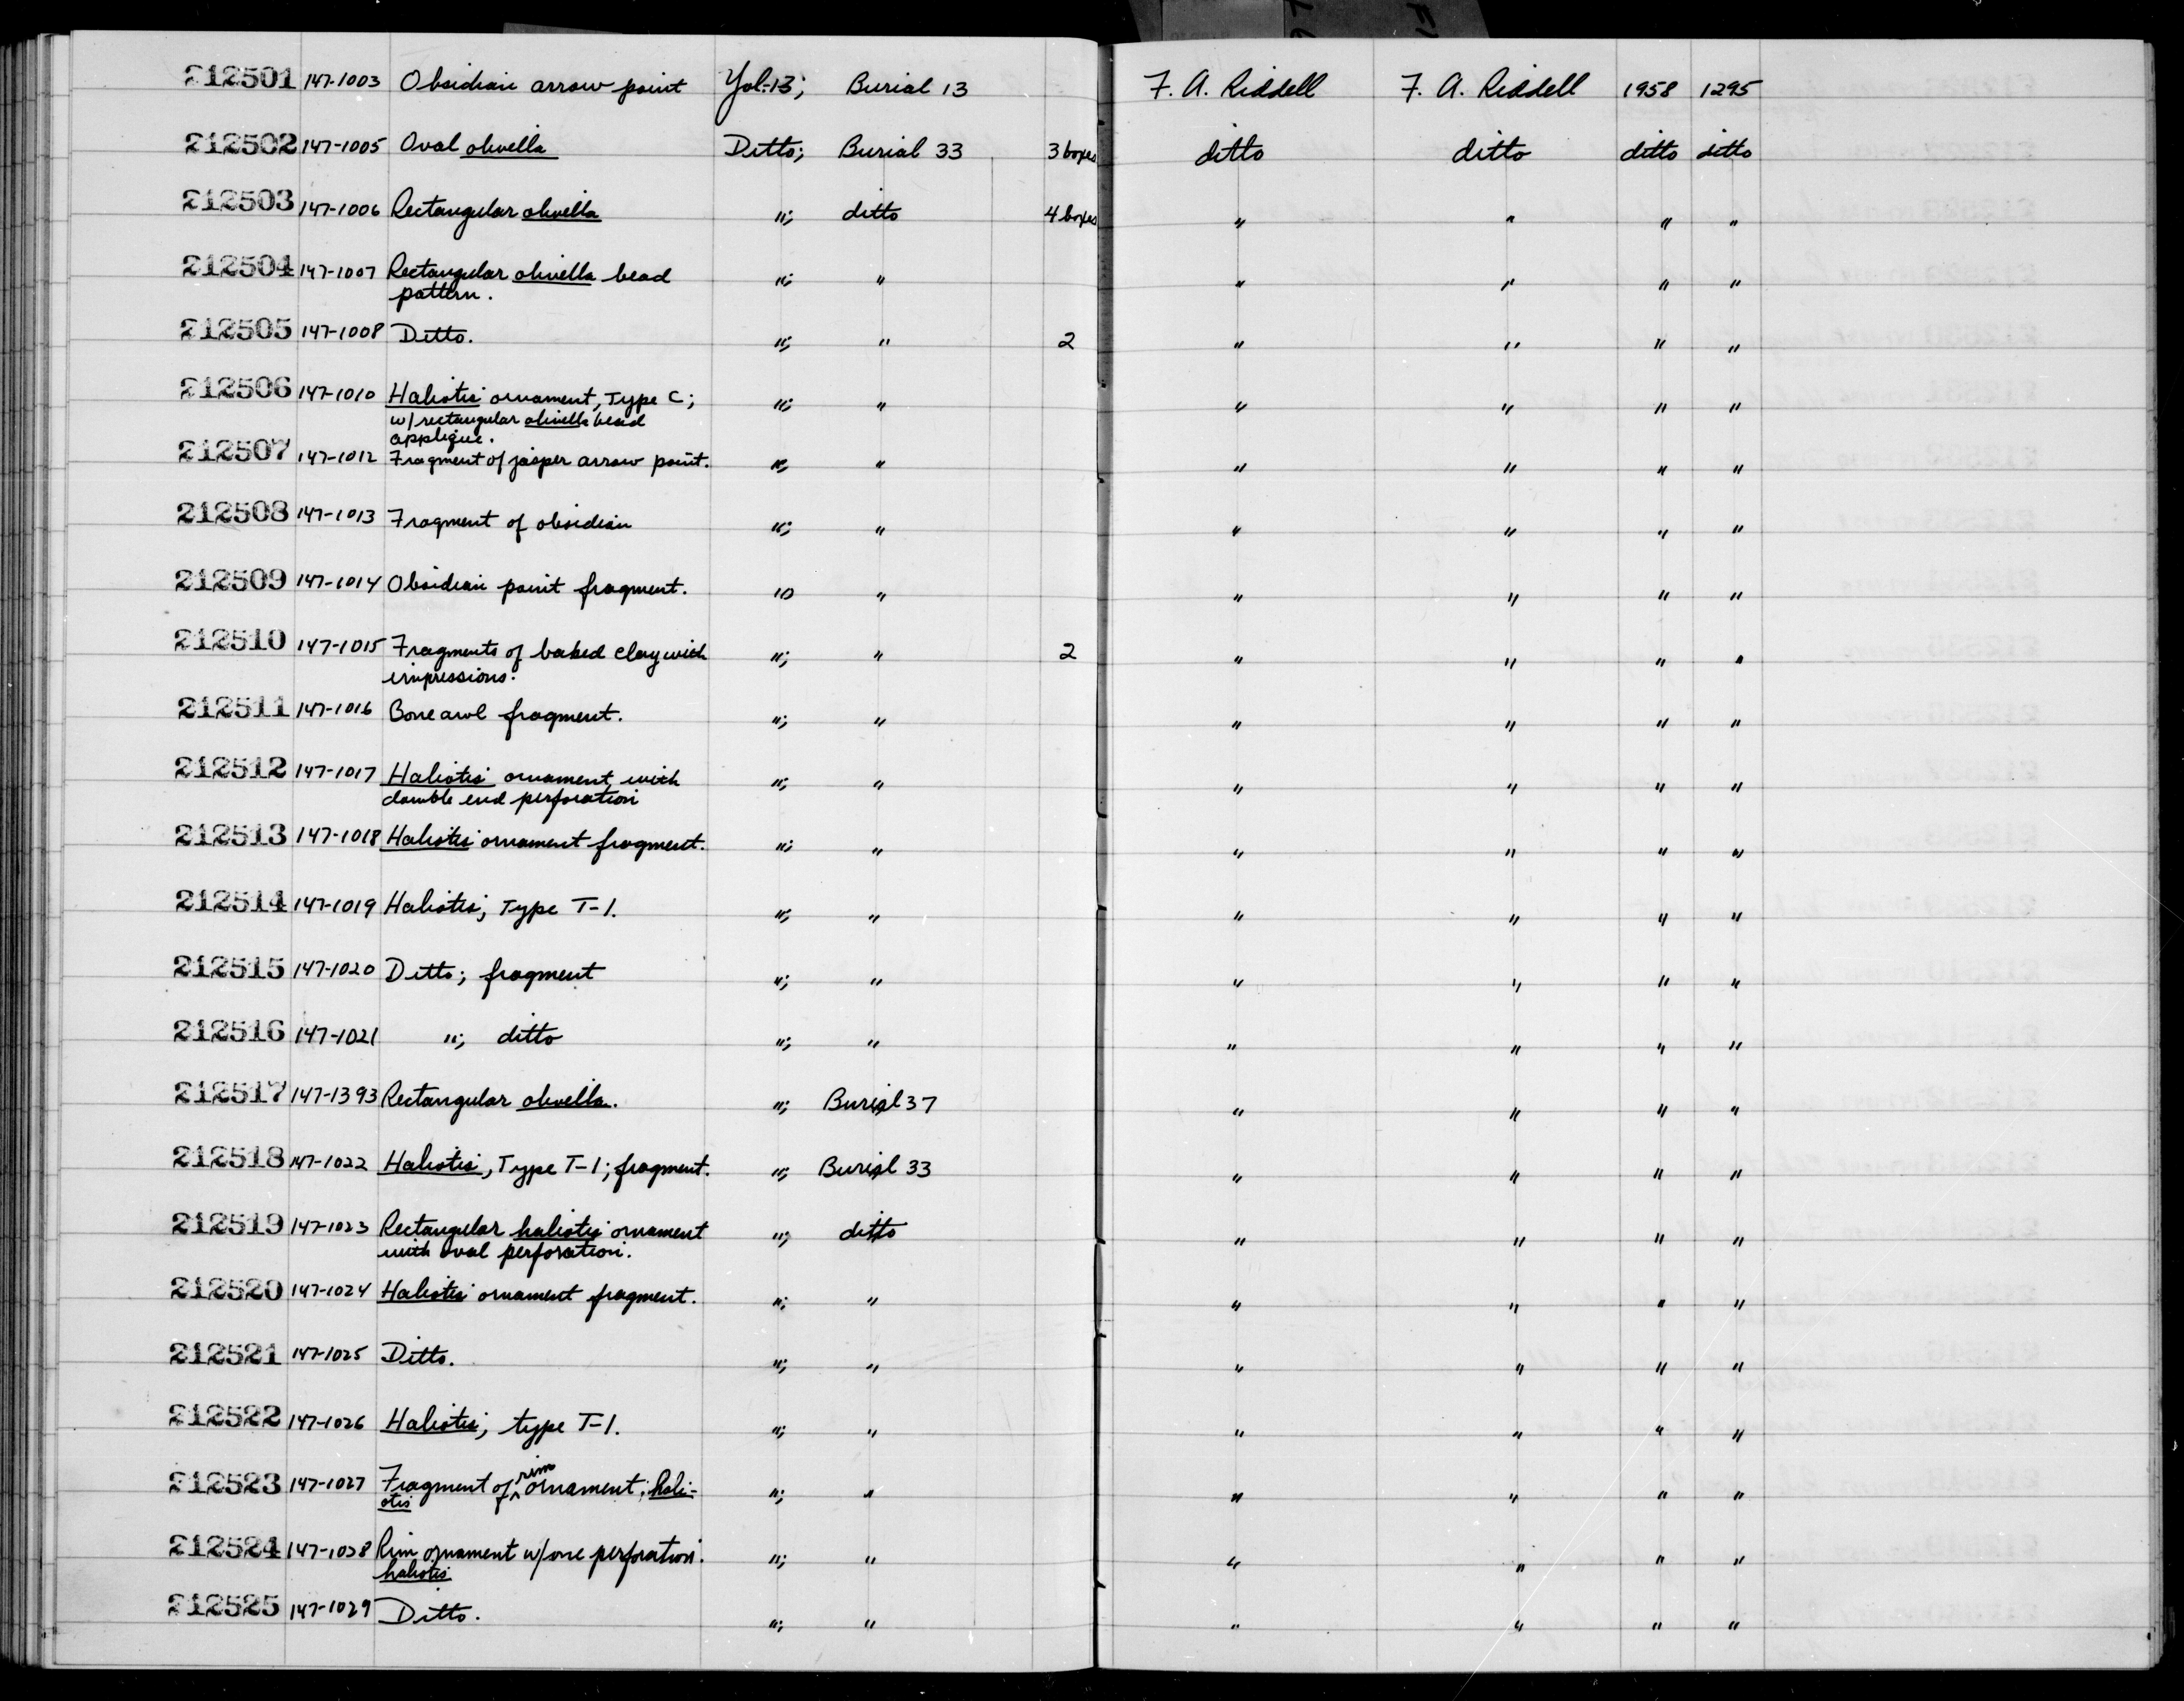 212501 147-1003 Obsidian arrow point Yol-13; Burial 13 F. A. Riddell F. A. Riddell 1958 1295
212502 147-1005 Oval olivella Ditto; Burial 33 3 boxes ditto ditto ditto ditto
212503 147-1006 Rectangular olivella "; ditto 4 boxes " " " "
212504 147-1007 Rectangular olivella bead "; " " " " "
pattern.
212505 147-1008 Ditto. "; " 2 " " " "
212506 147-1010 Haliotis ornament, Type C; "; " " " " "
w/rectangular olivella bead
applique.
212507 147-1012 Fragment of jasper arrow point. "; " " " " "
212508 147-1013 Fragment of obsidian "; " " " " "
212509 147-1014 Obsidian point fragment. "; " " " " "
212510 147-1015 Fragments of baked clay with "; " 2 " " " "
impressions.
212511 147-1016 Bone awl fragment. "; " " " " "
212512 147-1017 Haliotis ornament, with "; " " " " "
double end perforation
212513 147-1018 Haliotis ornament fragment. "; " " " " "
212514 147-1019 Haliotis; Type T-1. "; " " " " "
212515 147-1020 Ditto; fragment "; " " " " "
212516 147-1021 "; ditto "; " " " " "
212517 147-1393 Rectangular olivella. "; Burial 37 " " " "
212518 147-1022 Haliotis, Type T-1; fragment. "; Burial 33 " " " "
212519 147-1023 Rectangular haliotis ornament "; ditto " " " "
with oval perforation.
212520 147-1024 Haliotis ornament fragment. "; " " " " "
212521 147-1025 Ditto. "; " " " " "
212522 147-1026 Haliotis; type T-1. "; " " " " "
212523 147-1027 Fragment of rim ornament; hali- "; " " " " "
otis
212524 147-1028 Rim ornament w/one perforation. "; " " " " "
haliotis
212525 147-1029 Ditto. "; " " " " "